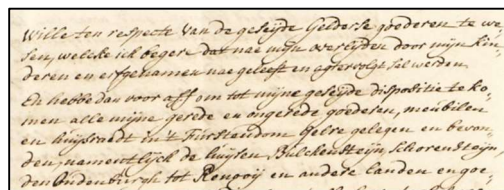 wille ten respecte van de geseijde Gelderse goederen te we-
sen, welcke ick begere dat nae mijn overlijden door mijn kin-
deren en erfgenamen nae geleeft en agtervolgt sal werden.
En hebbe dan voor aff om tot mijne geseijde dispositie te ko-
men alle mijne gerede en ongerede goederen, meubilen
en huijsraedt in 't Furstendom Gelre gelegen en bevon-
den, namentlijck de huijsen, Bulckensteijn, Schorensteijn,
den Oudenburgh tot Rengoij en andere landen en goe